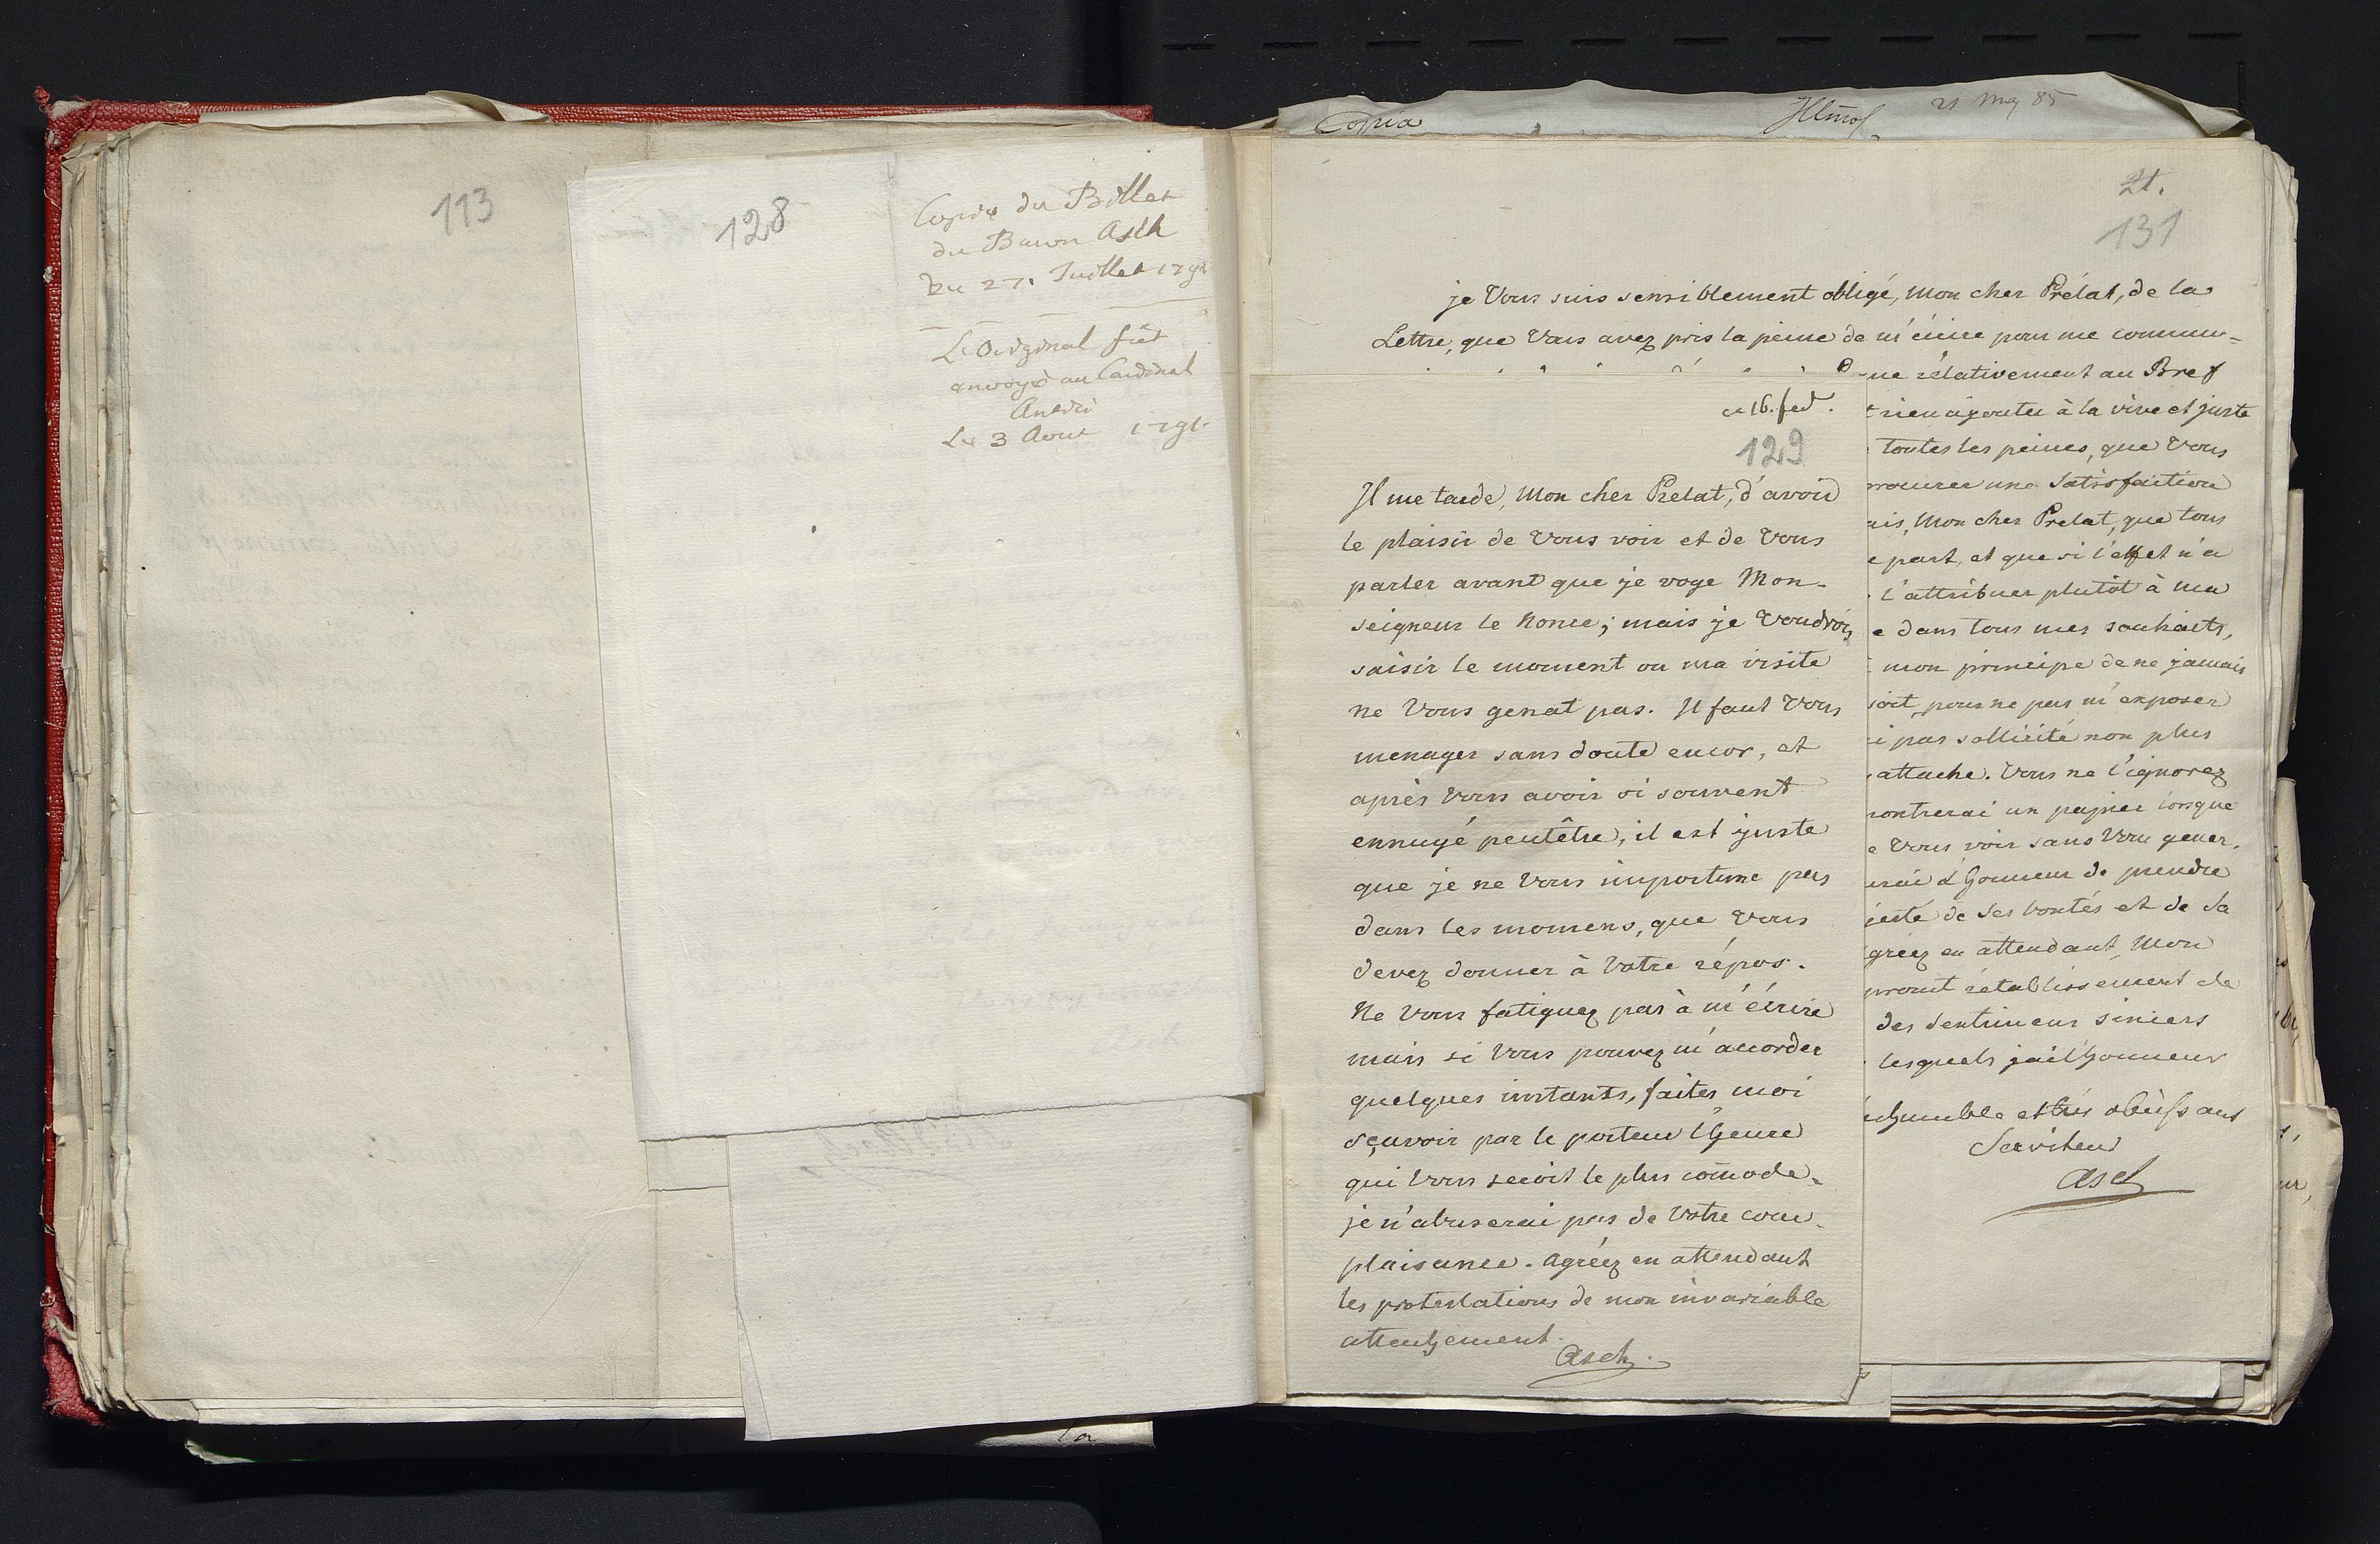 113
128
Copie du Billet
du Baron Asch
Du 27. Juillet 1791
Le Original fût
envoyé au Cardinal
Antici
Le 3 Aout 1791.
Copia
Illmo
21 May 85
21.
131
je Vous suis sensiblement obligé, Mon cher Prélat, de la
Lettre, que Vous avez pris la peine de m'écrire pour me commu-
ne rélativement au Bref
rien ajouter à la vive et juste
toutes les peines, que Vous
rocurer une Satisfaction
ais, Mon cher Prelat, que tous
e part, et que si l'effet n'a
l'attribuer plutôt à ma
e dans tous mes souhaits,
mon principe de ne jamais
soit, pour ne pas m'exposer
i pas sollicité non plus
attache. Vous ne l'ignorez
montrerai un papier lorsque
e Vous voir sans Vous gener.
urai l'honneur de prendre
jesté de Ses bontés et de Sa
gréez en attendant, Mon
promt rétablissement de
des Sentimens sincers
lesquels jai l'honneur
humble et très obeissant
Serviteur
Asch
ce 16. fed.
129
Il me tarde, Mon cher Prelat, d'avoir
le plaisir de Vous voir et de Vous
parler avant que je voye Mon-
seigneur le Nonce; mais je Voudrois
saisir le moment ou ma visite
ne Vous genat pas. Il faut Vous
menager sans doute encor, et
après Vous avoir si souvent
ennuyé peutêtre, il est juste
que je ne Vous importune pas
dans les momens, que Vous
devez donner à Votre répos.
Ne Vous fatiguez pas à m'écrire
mais si Vous pouvez m'accorder
quelques instants, faites moi
sçavoir par le porteur l'heure
qui Vous seroit le plus comode.
je n'abuserai pas de Votre com-
plaisance. Agréez en attendant
les protestations de mon invariable
attachement.
Asch.